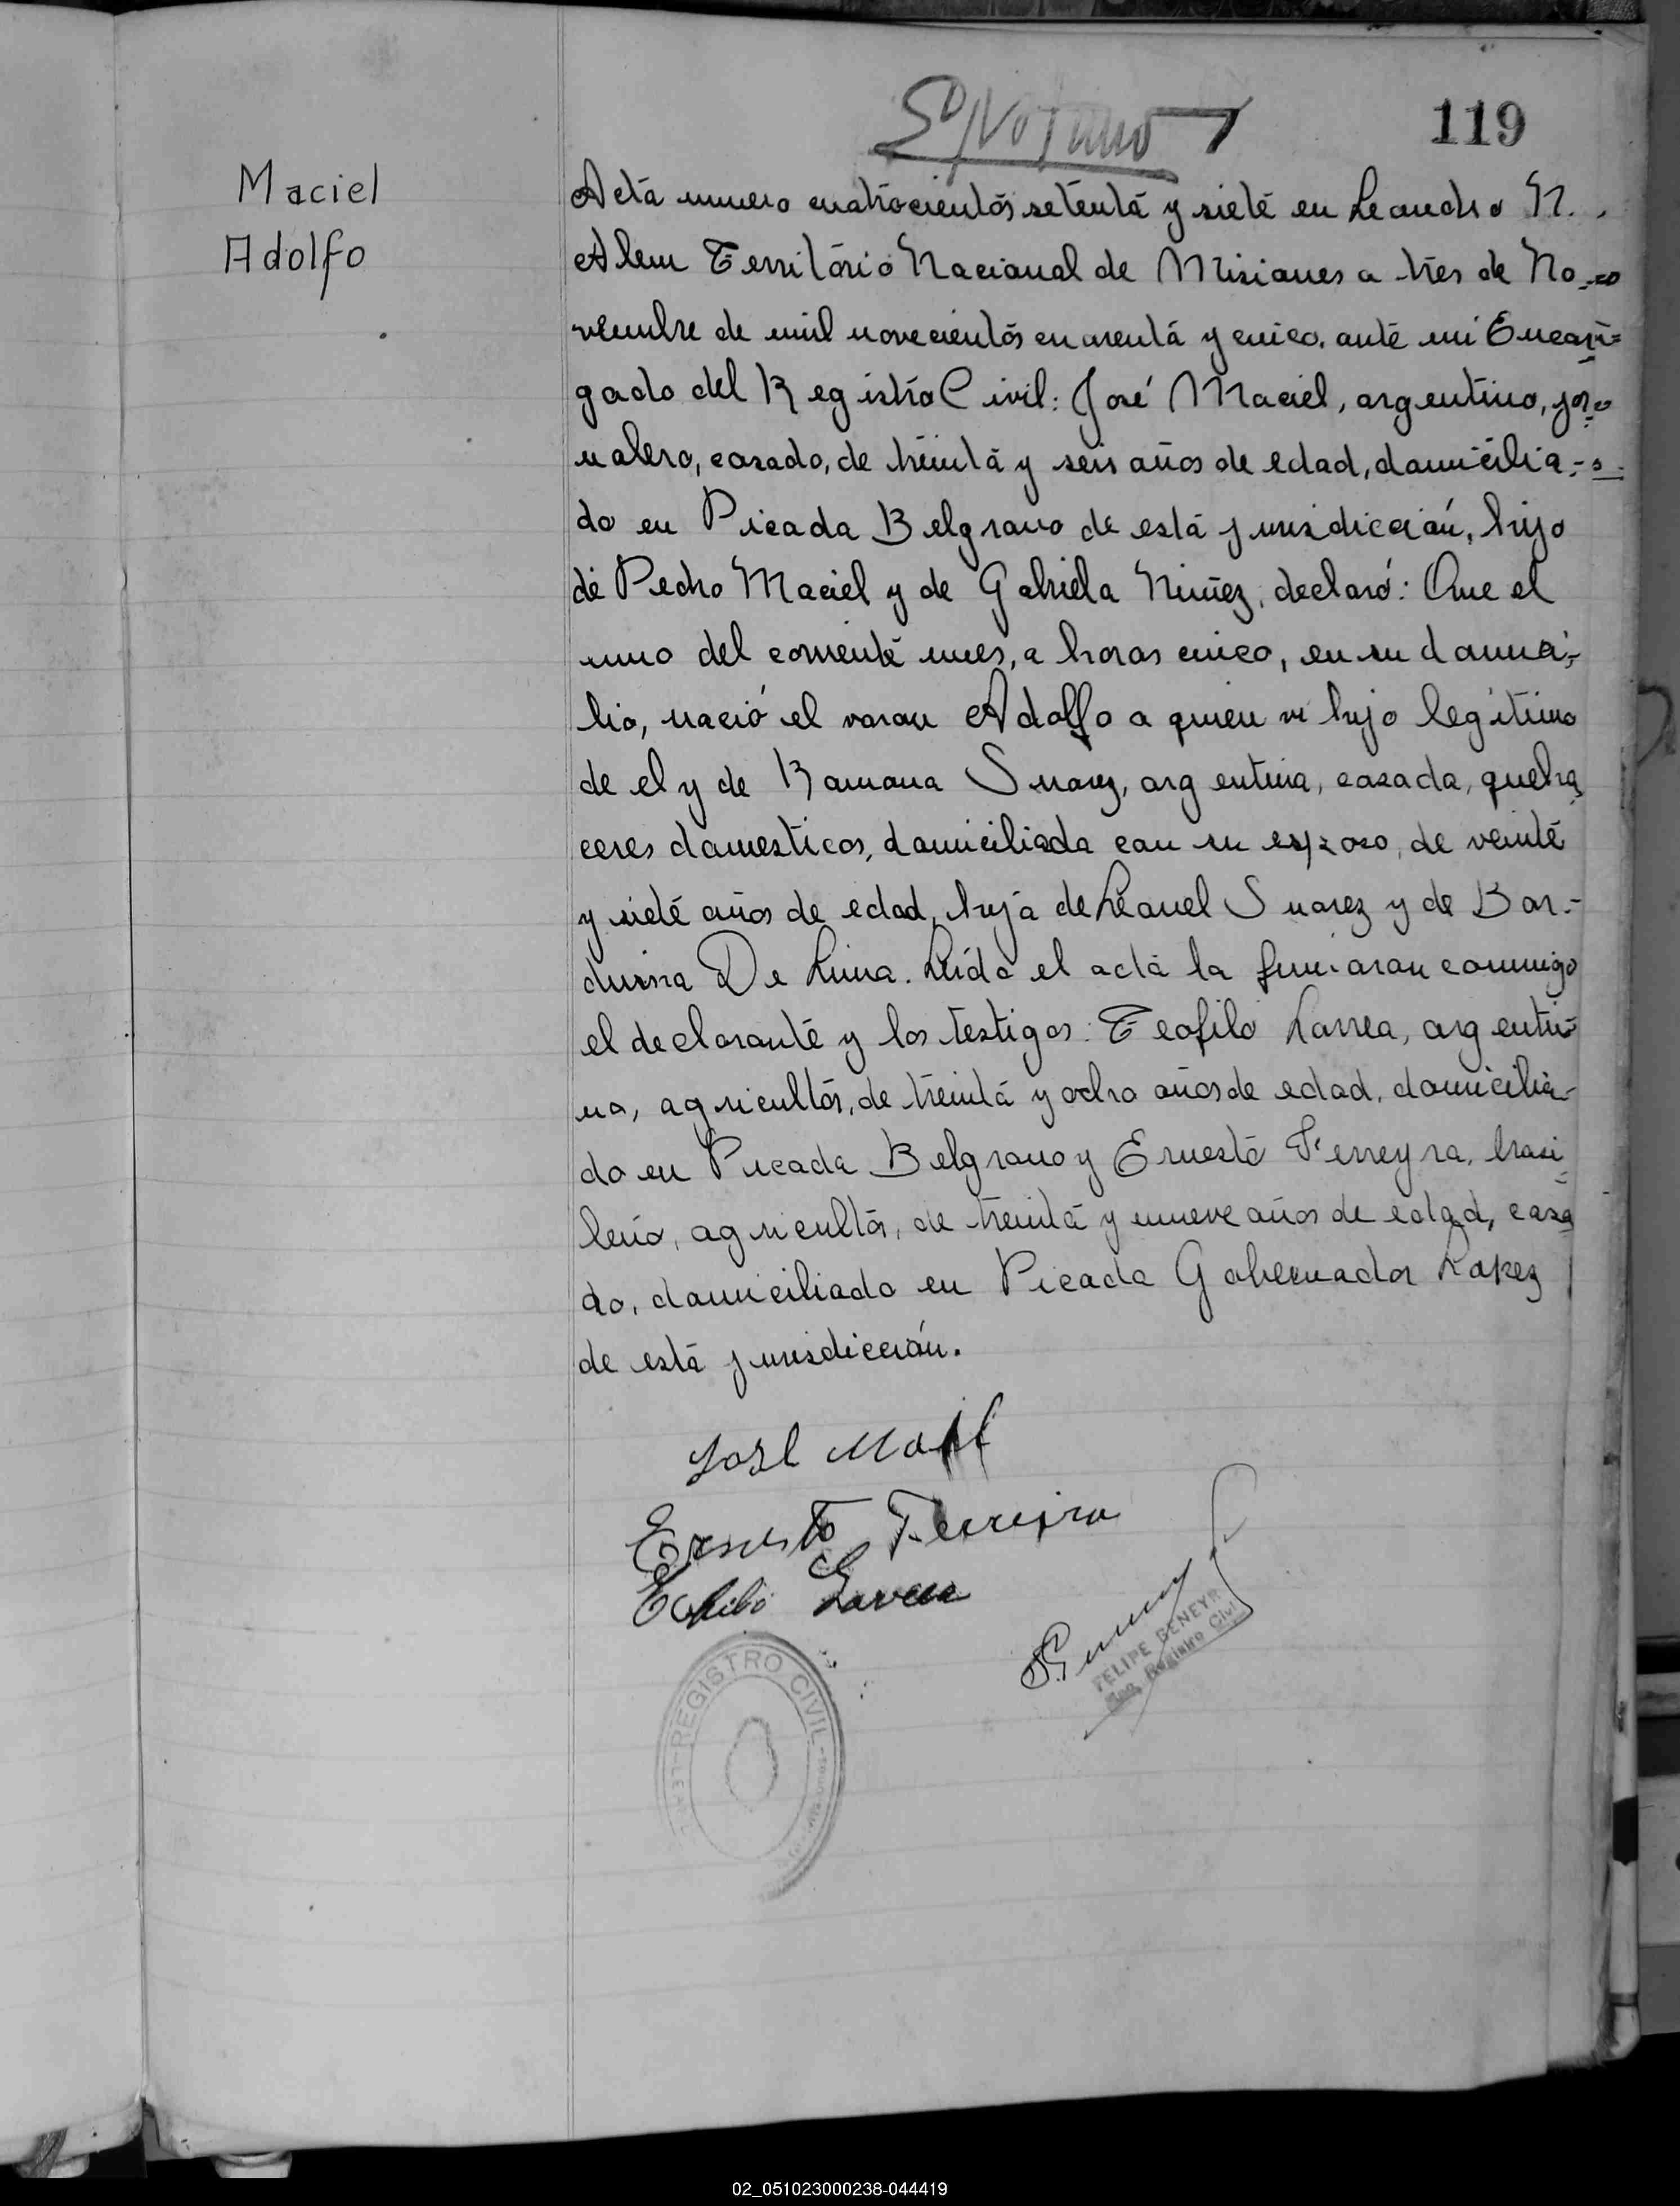 119
Maciel
Adolfo
Acta numero cuatrocientos setenta y siete en Leandro N.
Alem Territorio Nacional de Misiones a tres de No-
viembre de mil novecientos cuarenta y cinco, ante mi Encar=
gado del Registro Civil: José Maciel, argentino, jor
nalero, casado, de treinta y seis años de edad, domicilia-
do en Picada Belgrano de esta jurisdicción, hijo
de Pedro Maciel y de Gabriela Nuñez, declaró: Que el
uno del corriente mes, a horas cinco, en su domici-
lio, nació el varon Adolfo a quien vi hijo legitimo
de el y de Ramona Suarez, argentina, casada, queha
ceres domesticos, domiciliada con su esposo, de veinte
y siete años de edad, hija de Leonel Suarez y de Bar-
duina De Lima. Leída el acta la firmaron conmigo
el declarante y los testigos: Teofilo Larrea, argenti-
no, agricultor, de treinta y ocho años de edad, domicilia-
do en Picada Belgrano y Ernesto Ferreyra, brasi
leño, agricultor, de treinta y nueve años de edad, casa
do, domiciliado en Picada Gobernador Lopez
de esta jurisdicción.
José
Ernesto Ferreira
Larrea
FELIPE GENEYR
Enc. Registro Civil
REGISTRO CIVIL
02_051023000238-044419